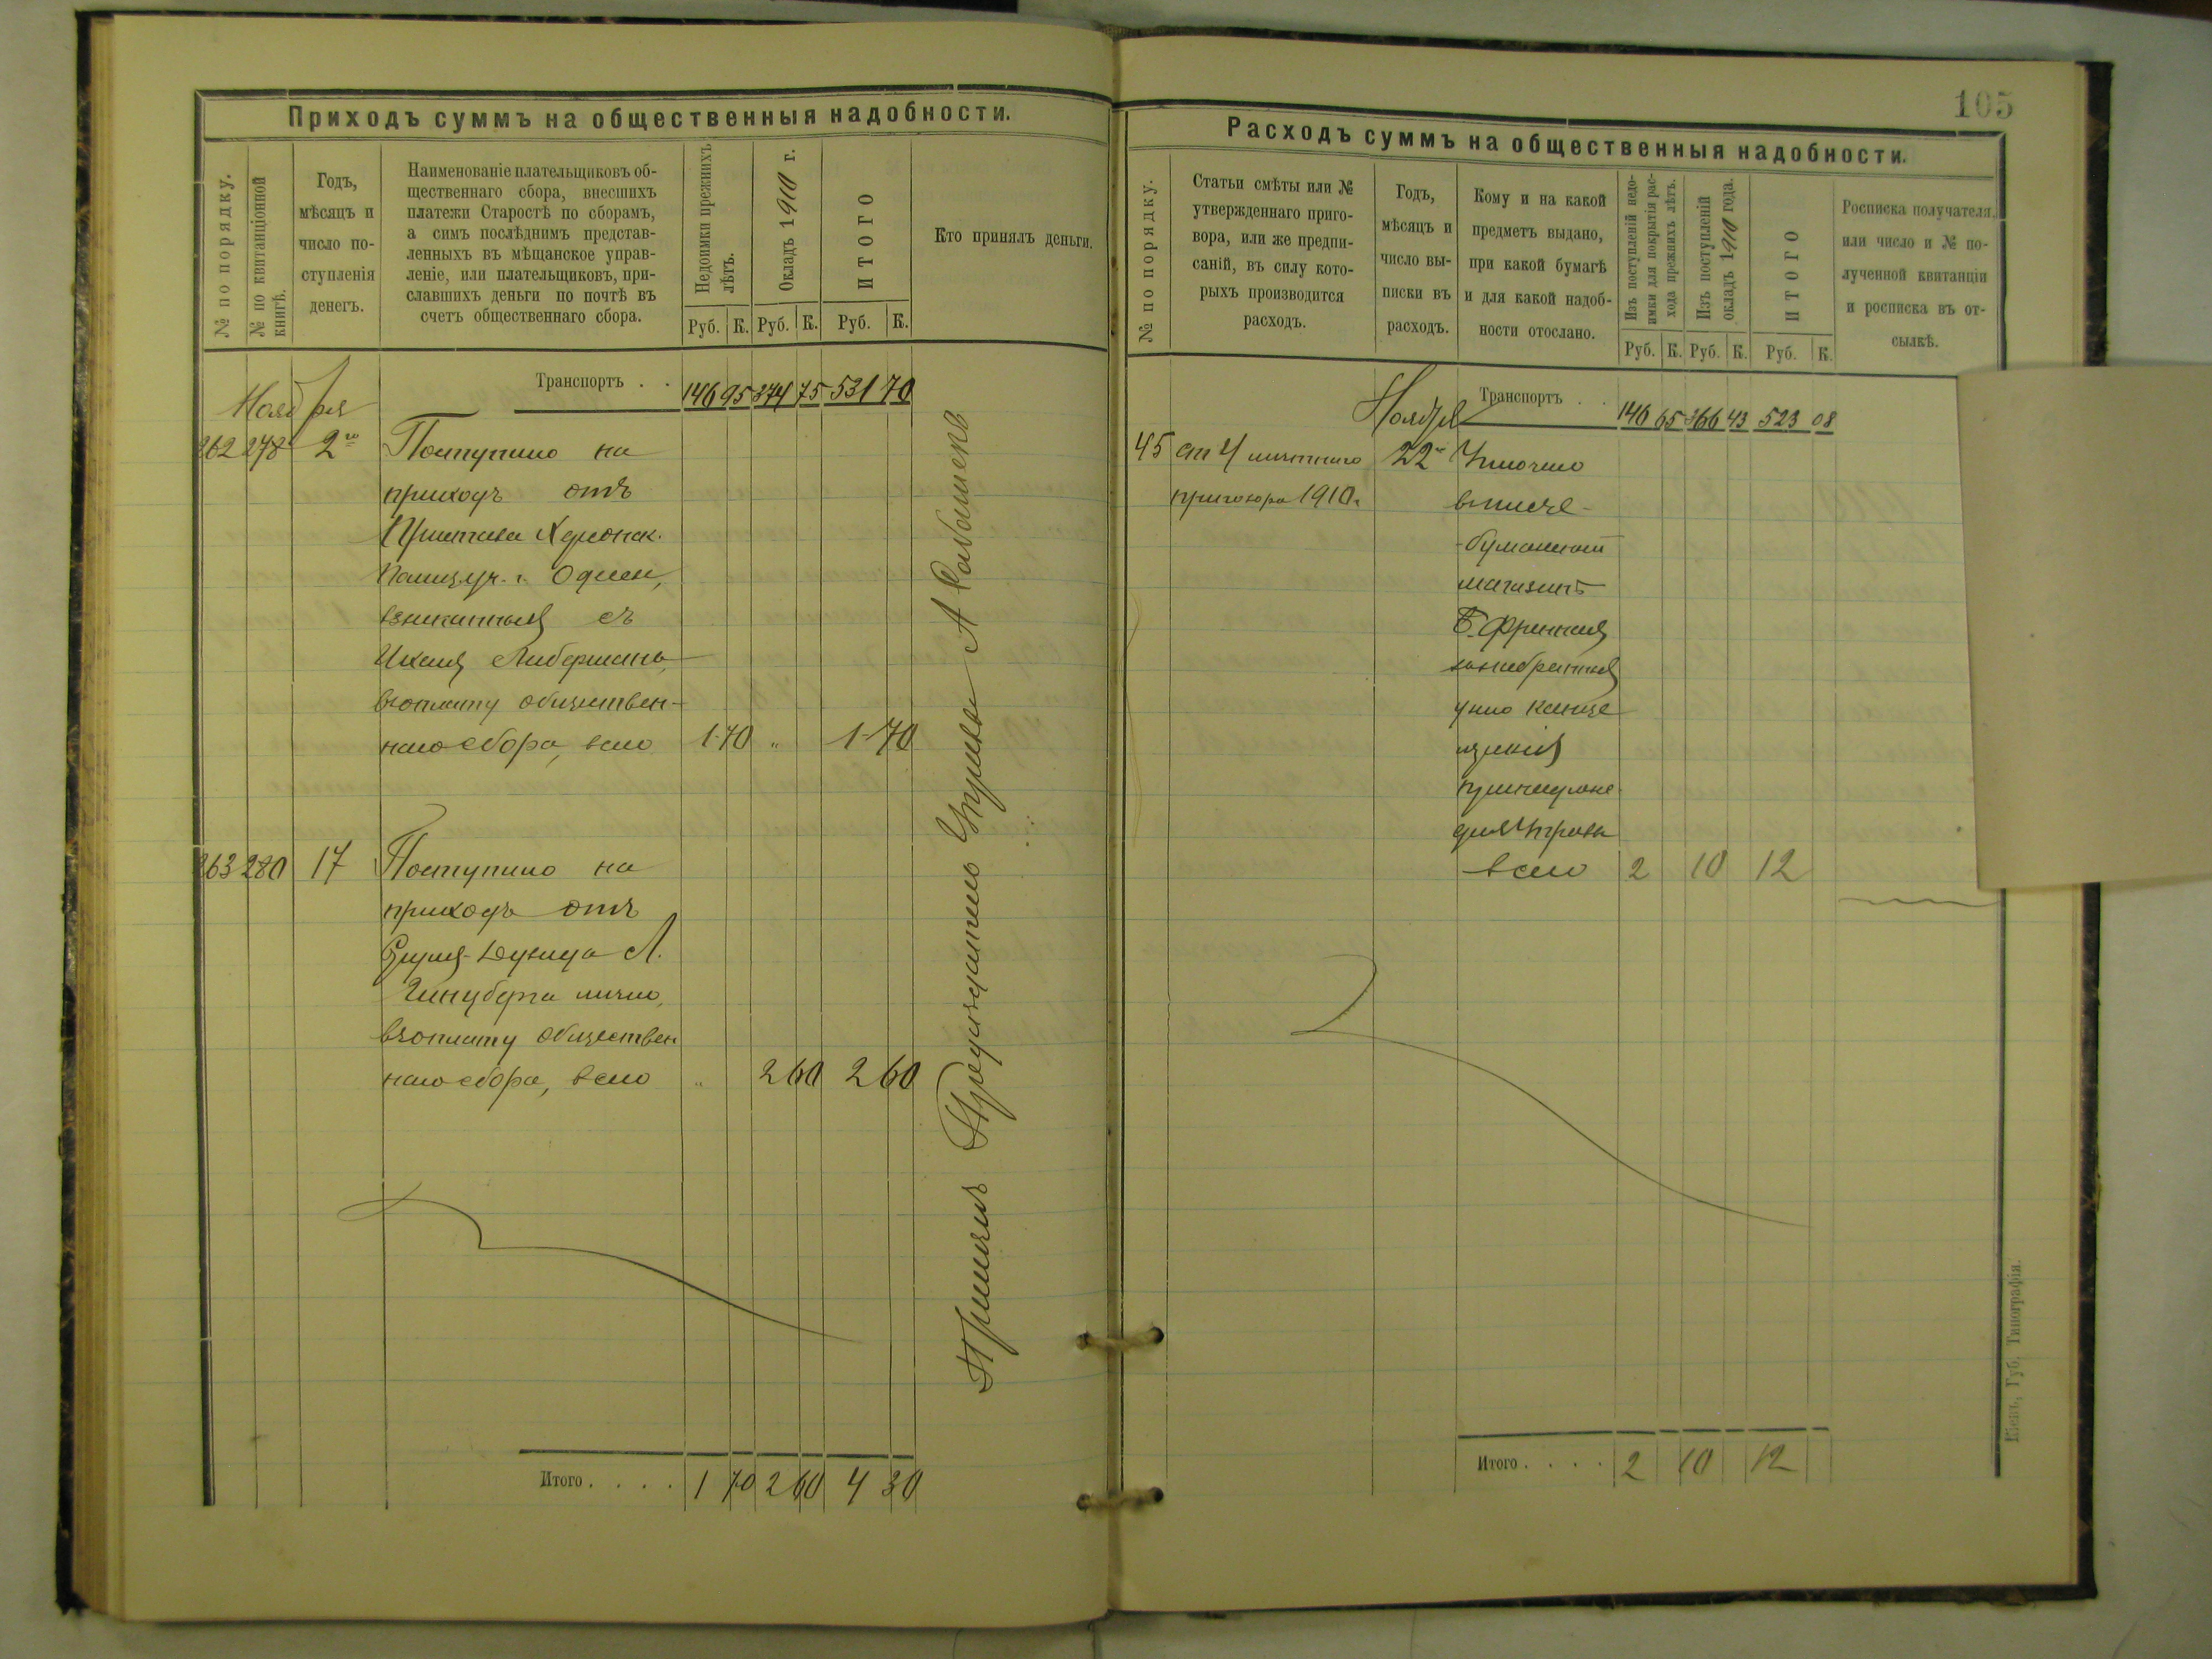 Приходъ суммъ на общественныя надобности.
№ по порядку.
№ по квитанціонной книгѣ.
Годъ,
мѣсяцъ и
число по-
ступленія
денегъ.
Наименованіе плательщиковъ об-
щественнаго сбора, внесшихъ
платежи Старостѣ по сборамъ,
а симъ послѣднимъ представ-
ленныхъ въ мѣщанское управ-
леніе, или плательщиковъ, при-
славшихъ деньги по почтѣ въ
счетъ общественнаго сбора.
Недоимки прежнихъ
лѣтъ.
Окладъ 1910 г.
ИТОГО
Кто принялъ деньги.
Руб. К. Руб. К. Руб. К.
Транспортъ . . 146 95 374 75 531 70
Ноября
262 278 2го Поступило на
приходъ отъ
Пристава Херсонск.
Полиц. уч. г. Одессы,
взысканныя съ
Либермана,
въ оплату обществен-
наго сбора, всего 1-70 " 1-70
263 280 17 Поступило на
приходъ отъ
Л.
Гинцберга лично,
въ оплату обществен
наго сбора, всего " 2 60 2 60
Принялъ Предсѣдатель Управы А
Итого . . . . 1 70 2 60 4 30
105
Расходъ суммъ на общественныя надобности.
№ по порядку.
Статьи смѣты или №
утвержденнаго приго-
вора, или же предпи-
саній, въ силу кото-
рыхъ производится
расходъ.
Годъ,
мѣсяцъ и
число вы-
писки въ
расходъ.
Кому и на какой
предметъ выдано,
при какой бумагѣ
и для какой надоб-
ности отослано.
Изъ поступленій недо-
имки для покрытія рас-
хода прежнихъ лѣтъ.
Изъ поступленій
окладъ 1910 года.
ИТОГО
Росписка получателя,
или число и № по-
лученной квитанціи
и росписка въ от-
сылкѣ.
Руб. К. Руб. К. Руб. К.
Ноября Транспортъ . . 146 65 366 43 523 08
45 ст 4 смѣтнаго 22го Уплочено
приговора 1910 г. въ писче-
бумажный
магазинъ
Б. Френкеля
за набранныя
у него канце
лярскія
принадлежн.
для Управы
всего 2 10 12
Итого . . . . 2 10 12
Кіевъ, Губ. Типографія.